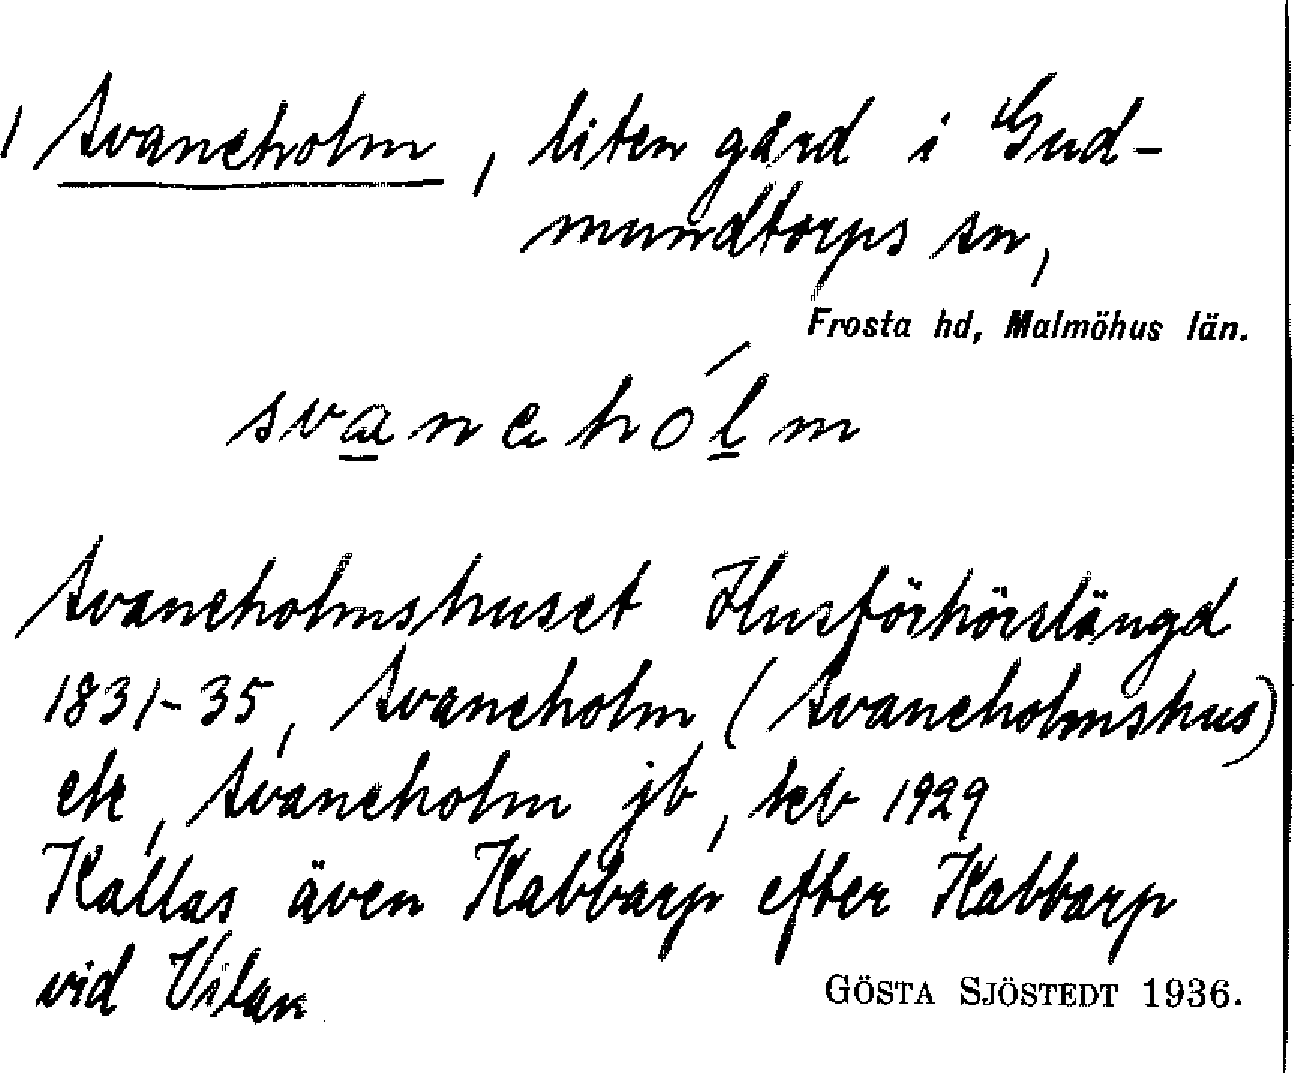 1 Svaneholm, liten gård i Gud-
mundtorps sn,
Frosta hd, Malmöhus län.
svanehólm
Svaneholmshuset Husförhörslängd
1831-35, Svaneholm (Svaneholmshus)
ek, Svaneholm jb, teb 1929
Kallas även Kabbarp efter Kabbarp
vid Vilan
GÖSTA SJÖSTEDT 1936.